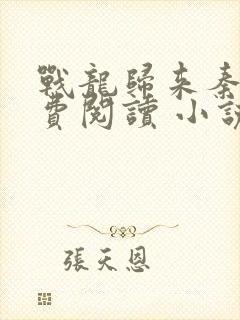 戰龍歸來秦
費閱讀 小說
張天恩